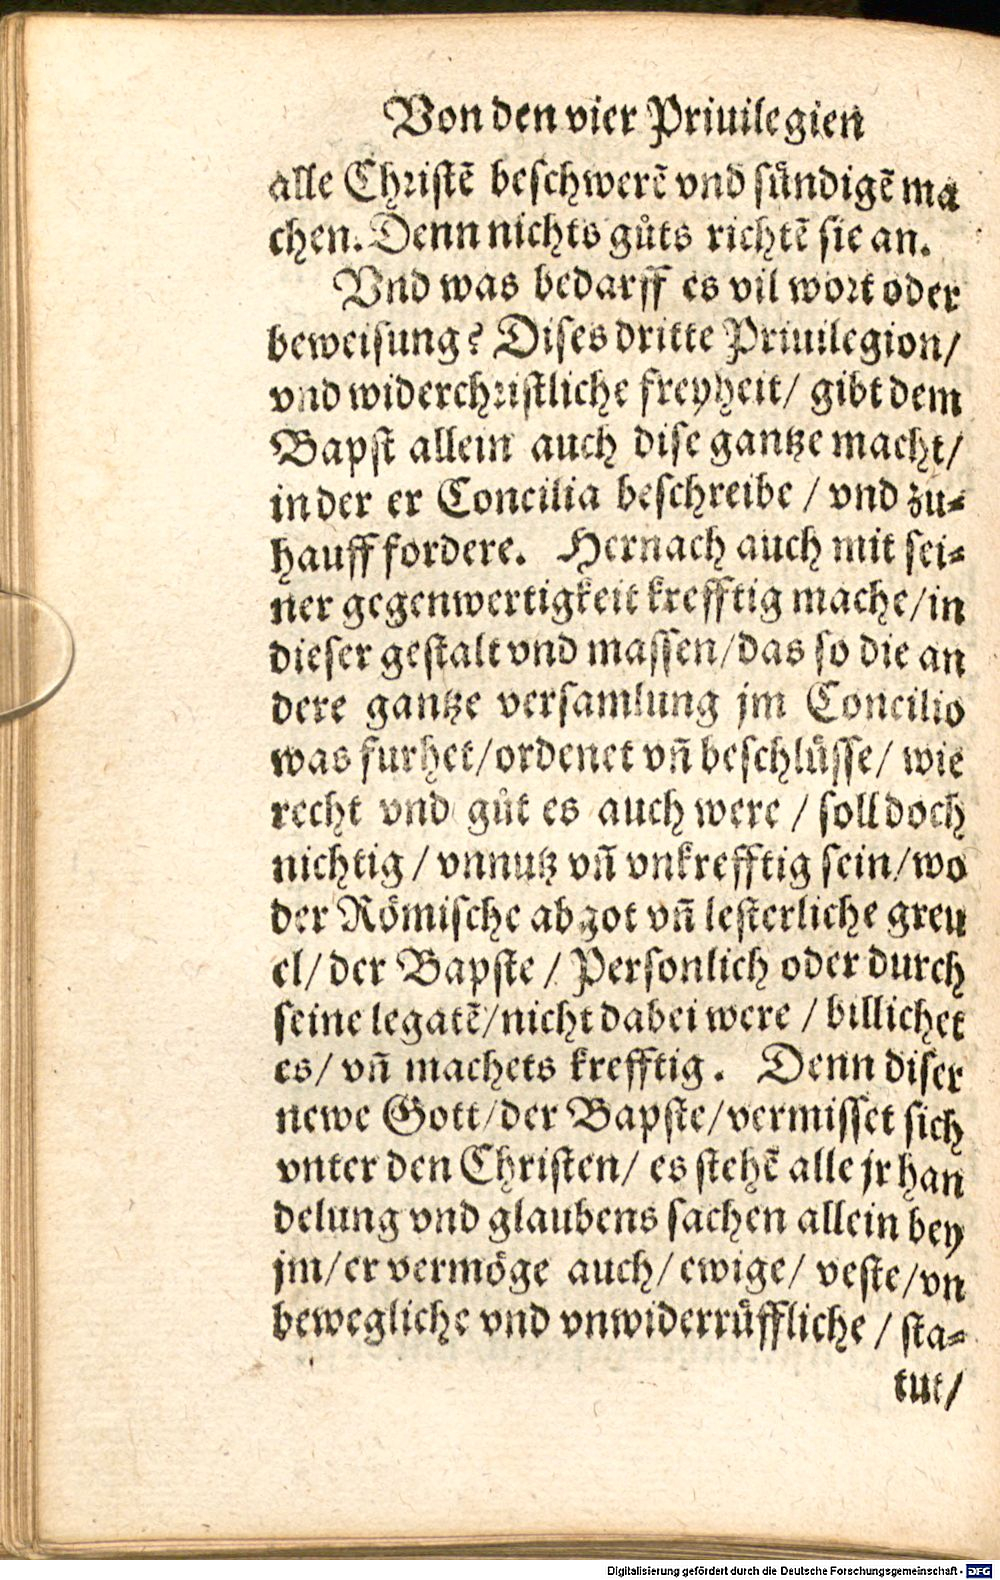 Von den vier Priuilegien
alle Christẽ beschwerẽ vnd sündigẽ ma
chen. Denn nichts gůts richtẽ sie an.
Vnd was bedarff es vil wort oder
beweisung? Dises dritte Priuilegion/
vnd widerchristliche freyheit/ gibt dem
Bapst allein auch dise gantze macht/
in der er Concilia beschreibe / vnd zu-
hauff fordere. Hernach auch mit sei-
ner gegenwertigkeit krefftig mache/ in
dieser gestalt vnd massen/ das so die an
dere gantze versamlung jm Concilio
was furhet/ ordenet vñ beschlüsse/ wie
recht vnd gůt es auch were / soll doch
nichtig / vnnutz vñ vnkrefftig sein/ wo
der Römische abgot vñ lesterliche greu
el/ der Bapste / Personlich oder durch
seine legatẽ/ nicht dabei were / billichet
es/ vñ machets krefftig. Denn diser
newe Gott/ der Bapste/ vermisset sich
vnter den Christen/ es stehẽ alle jr han
delung vnd glaubens sachen allein bey
jm/ er vermöge auch/ ewige/ veste/ vn
bewegliche vnd vnwiderrüffliche / sta-
tut/
Digitalisierung gefördert durch die Deutsche Forschungsgemeinschaft - DFG